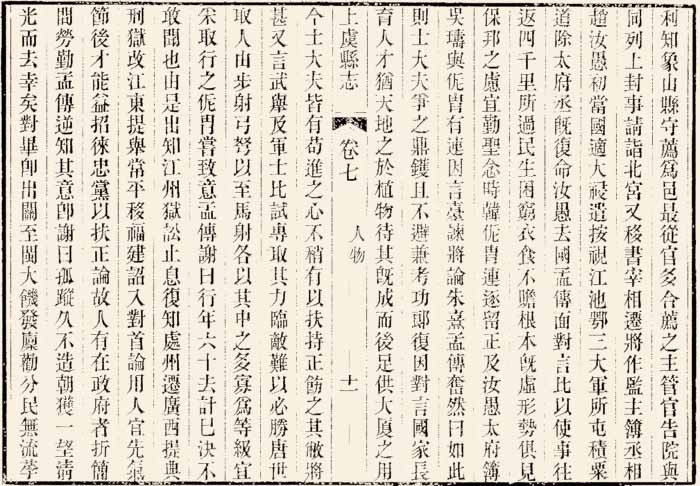 利知象山縣守薦爲邑最從官多合薦之主管官告院與
同列上封事請詣北宮又移書宰相遷將作監主簿丞相
趙汝愚初當國適大祲遣按視江池鄂三大軍所屯積粟
道除太府丞旣復命汝愚去國孟傳面對言比以使事往
返四千里所過民生困窮衣食不贍根本旣虛形勢俱見
保邦之慮宜勤聖念時韓侂冑連逐留正及汝愚太府簿
吳璹與侂冑有連因言臺諫將論朱熹孟傳奮然曰如此
則士大夫爭之鼎鑊且不避兼考功郞復因對言國家長
育人才猶天地之於植物待其旣成而後足供大廈之用
上虞縣志 卷七 人物 十一
今士大夫皆有苟進之心不稍有以扶持正飭之其敝將
甚又言武舉及軍士比試專取其力臨敵難以必勝唐世
取人由步射弓弩以至馬射各以其中之多寡爲等級宜
采取行之侂冑嘗致意孟傳謝曰行年六十去計已決不
敢聞也由是出知江州獄訟止息復知處州遷廣西提典
刑獄改江東提舉常平移福建詔入對首論用人宜先氣
節後才能益招徠忠黨以扶正論故人有在政府者折簡
問勞勤孟傳逆知其意卽謝曰孤蹤久不造朝獲一望清
光而去幸矣對畢卽出關至閩大饑發廩勸分民無流莩